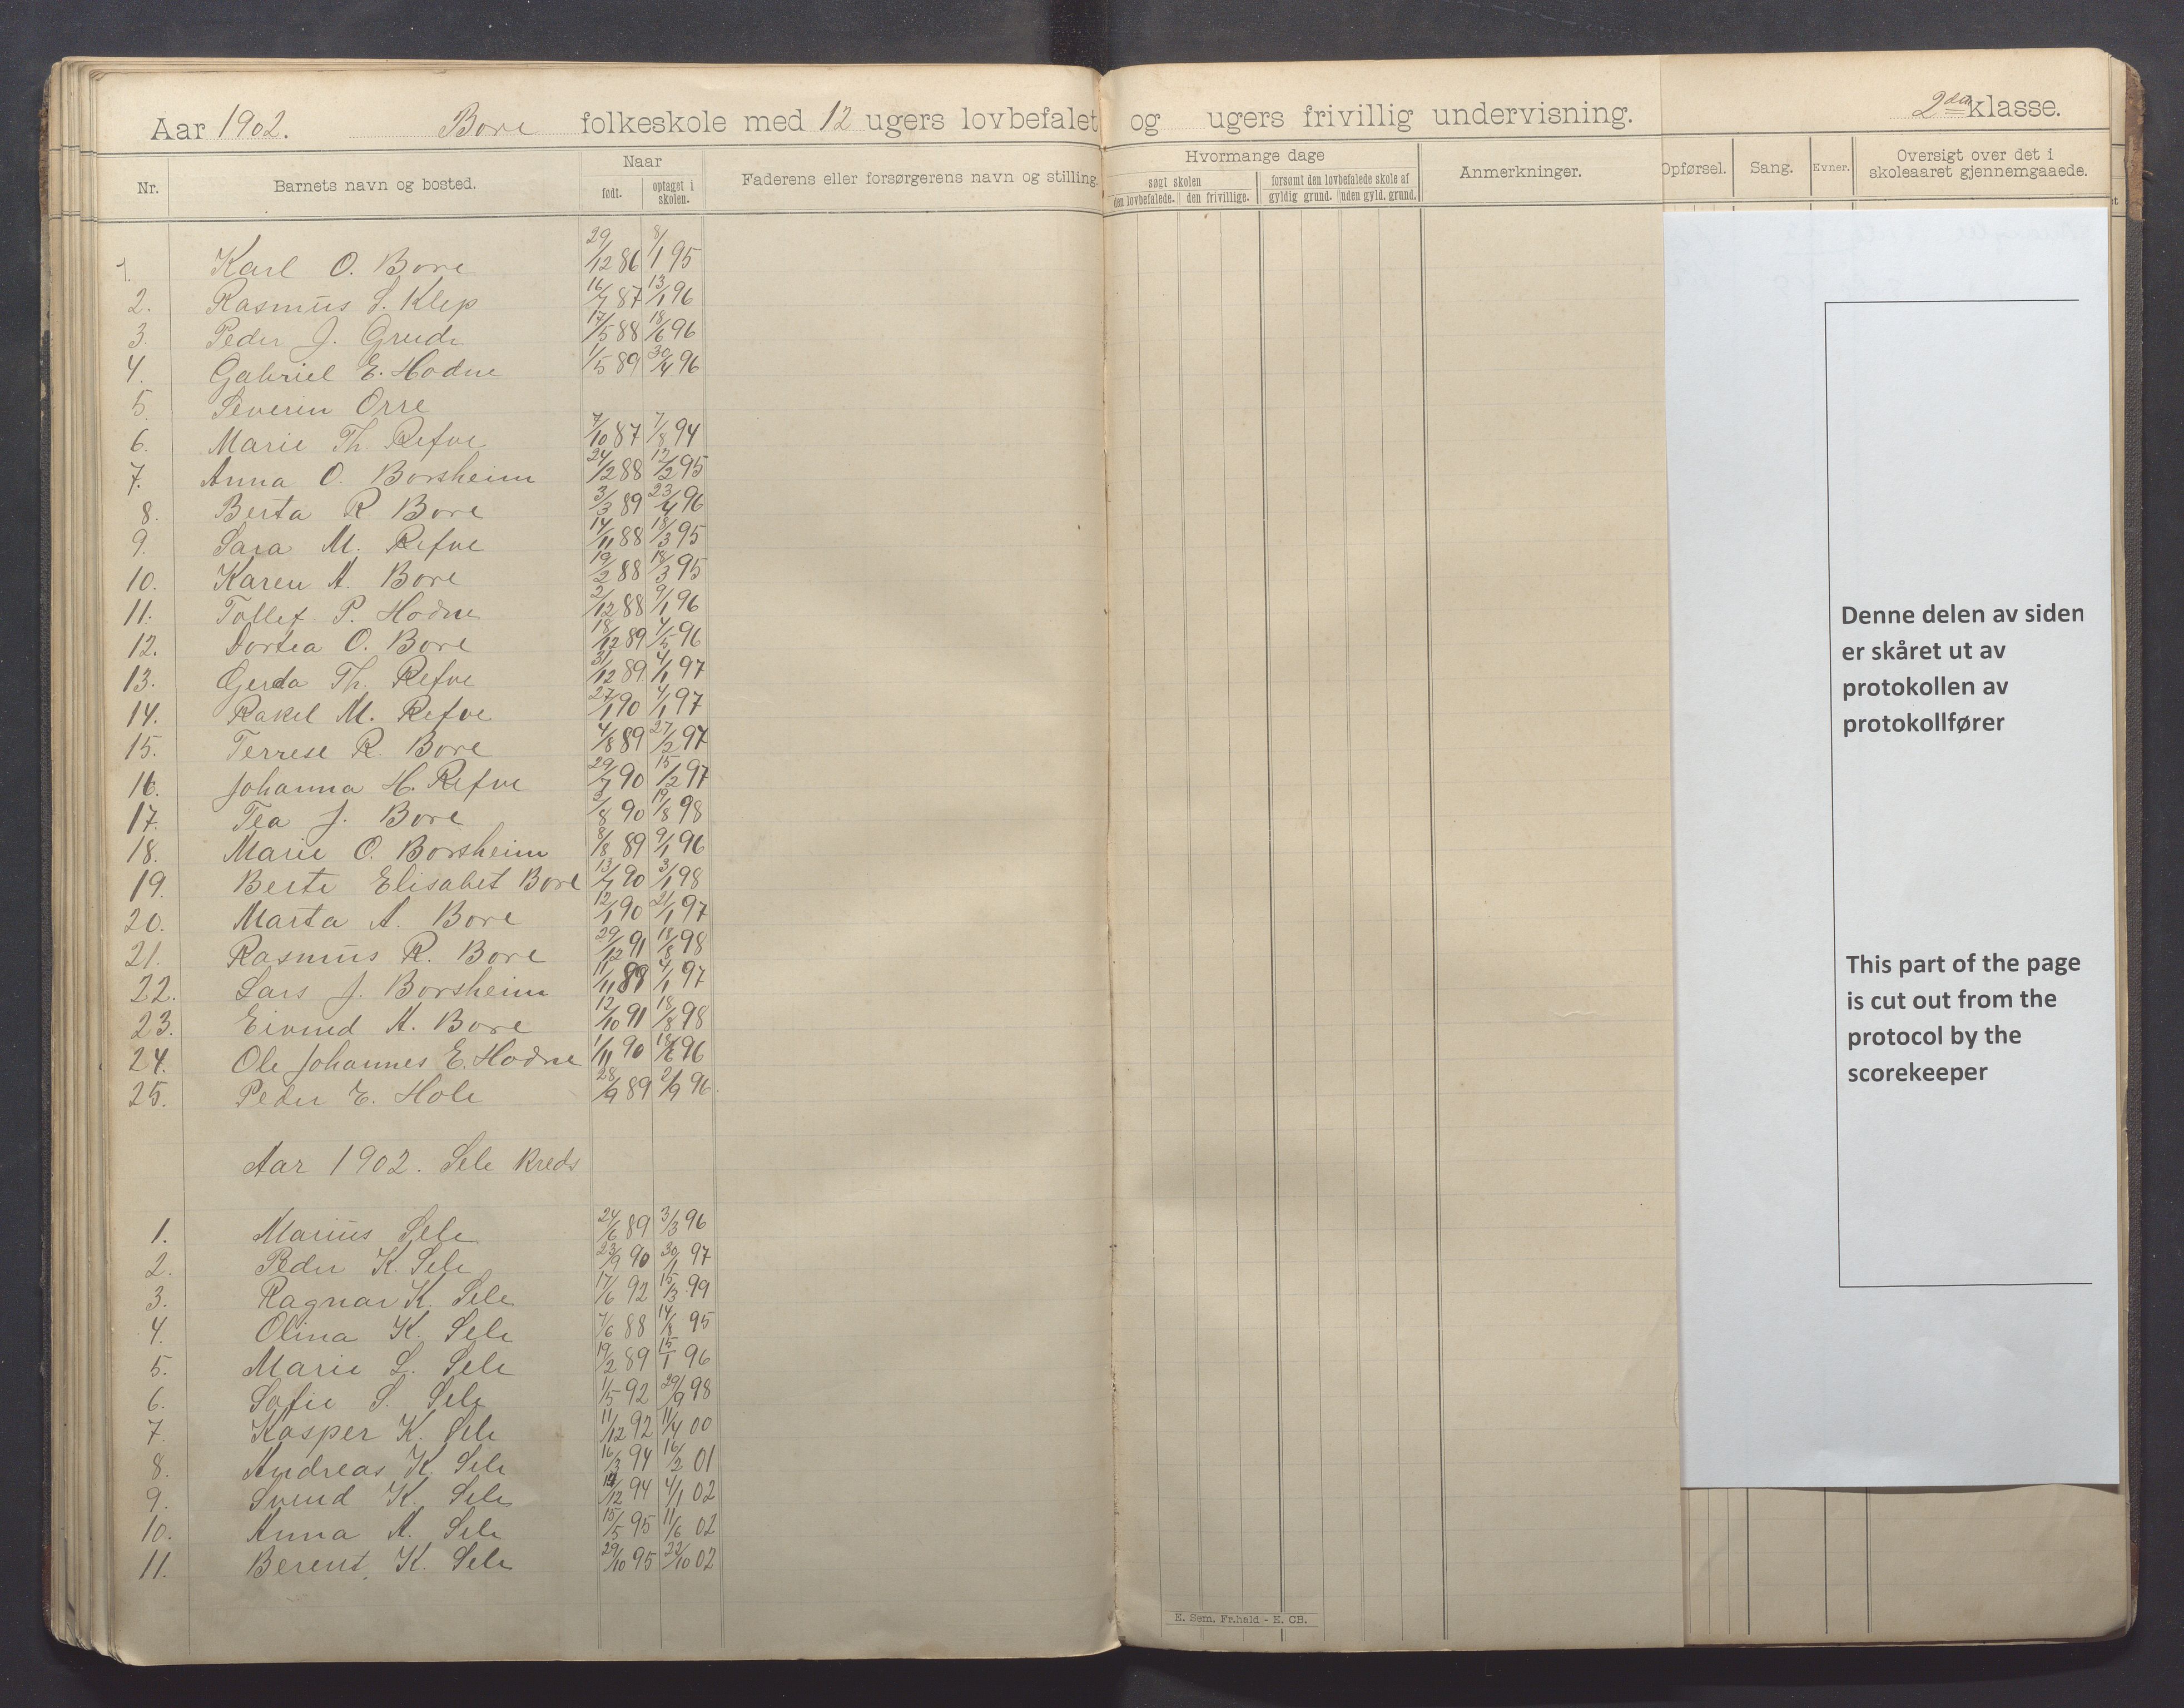 Aar 1902. Bore folkeskole med 12 ugers lovbefalet og ugers frivillig undervisning. 2den klasse.
Nr. Barnets navn og bosted. Naar født. optaget i skolen. Faderens eller forsørgerens navn og stilling. Hvormange dage søgt skolen den lovbefalede. den frivillige. forsømt den lovbefalede skole af gyldig grund. uden gyld. grund. Anmerkninger. Opførsel. Sang. Evner. Oversigt over det i skoleaaret gjennemgaaede.
1. Karl O. Bore 29/12 86 8/1 95
2. Rasmus S. Klep 16/7 87 13/1 96
3. Peder J. Grude 17/5 88 18/6 96
4. Gabriel E. Hodne 1/5 89 30/4 96
5. Severin Orre
6. Marie Th. Refve 7/10 87 7/8 94
7. Anna O. Borsheim 24/12 88 12/2 95
8. Berta R. Bore 3/3 89 23/4 96
9. Sara M. Refve 14/11 88 18/3 95
10. Karen A. Bore 19/2 88 18/3 95
11. Tollef P. Hodne 2/12 88 9/1 96
12. Dortea O. Bore 18/12 89 4/5 96
13. Gerda Th. Refve 31/12 89 4/1 97
14. Rakel M. Refve 27/1 90 4/1 97
15. Terrese R. Bore 4/8 89 27/2 97
16. Johanna H. Refve 29/7 90 15/12 97
17. Tea J. Bore 2/8 90 19/8 98
18. Marie O. Borsheim 8/8 89 9/1 96
19. Berte Elisabet Bore 13/7 90 3/1 98
20. Marta A. Bore 12/1 90 21/1 97
21. Rasmus R. Bore 29/12 91 18/8 98
22. Lars J. Borsheim 11/11 89 4/1 97
23. Eivind A. Bore 12/10 91 18/8 98
24. Ole Johannes E. Hodne 1/11 90 18/6 96
25. Peder E. Hole 28/9 89 2/9 96.
Aar 1902. Sele Kreds
1. Marius Sele 24/6 89 3/3 96
2. Peder K. Sele 23/9 90 30/1 97
3. Ragnar K. Sele 17/6 92 15/3 99
4. Olina K. Sele 7/6 88 14/8 95
5. Marie L. Sele 19/2 89 15/1 96
6. Sofie S. Sele 1/5 92 29/9 98
7. Kasper K. Sele 11/12 92 11/4 00
8. Andreas K. Sele 16/3 94 16/2 01
9. Svend K. Sele 12 94 4/1 02
10. Anna A. Sele 15/5 95 11/6 02
11. Berent. K. Sele 29/10 95 22/10 02
E. Sem, Fr.hald - E. CB.
Denne delen av siden
er skåret ut av
protokollen av
protokollfører
This part of the page
is cut out from the
protocol by the
scorekeeper